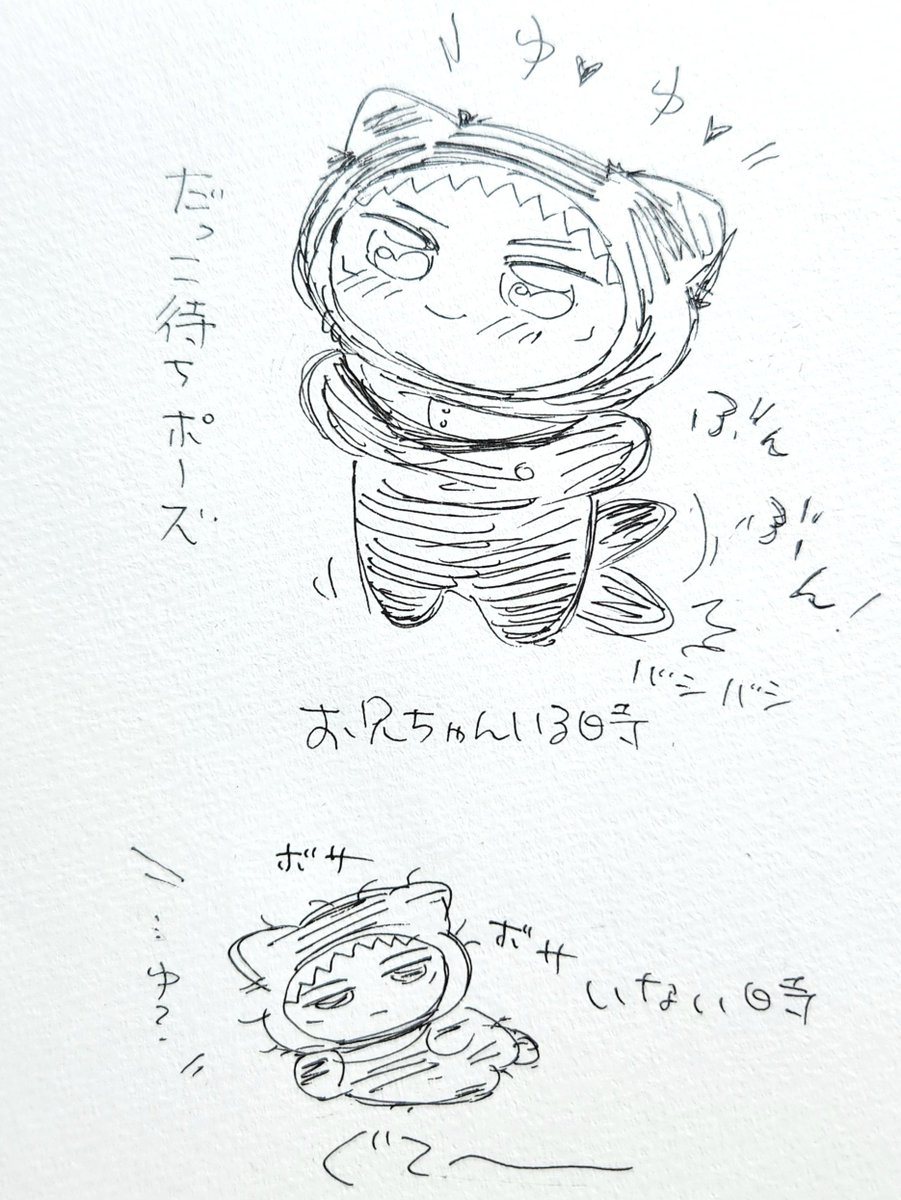 ゆ♥
ゆ♥
だっこ待ちポーズ
ぶん
ぶん!
バシバシ
お兄ちゃんいる時
ボサ
ボサ
…ゆ?
いない時
ぐて〜